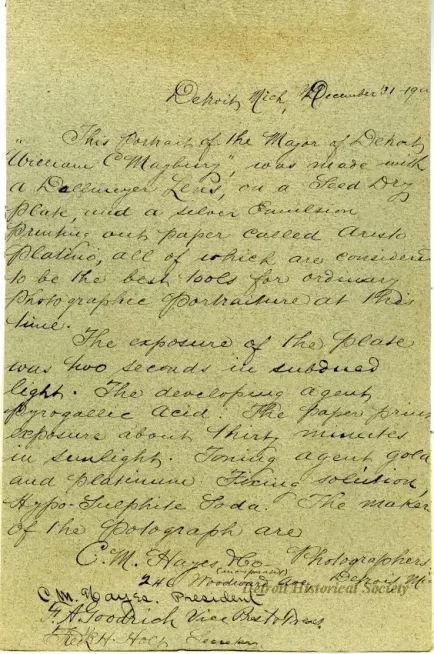 Detroit, Mich, December 31-190
This Portrait of the Major of Detroit
"William C Maybury", was made with
a Dallmeyer Lens, on a Seed Dry
Plate, and a silver Emulsion
printing out paper called Aristo
Platino, all of which are considered
to be the best tools for ordinary
Photographic Portraiture at this
time.
The exposure of the Plate
was two seconds in subdued
light. The developing agent
Pyrogallic Acid. The paper print
exposure about thirty minutes
in sunlight. Toning agent gold
and platinum. Fixing solution,
Hypo-Sulphite Soda. The makers
of the Potograph are
C. M. Hayes & Co. Photographers
(incorporated)
240 Woodward Ave, Detroit Mi
C. M. Hayes. President
F. A. Goodrich Vice Prest
Fred H. Holt
Detroit Historical Society